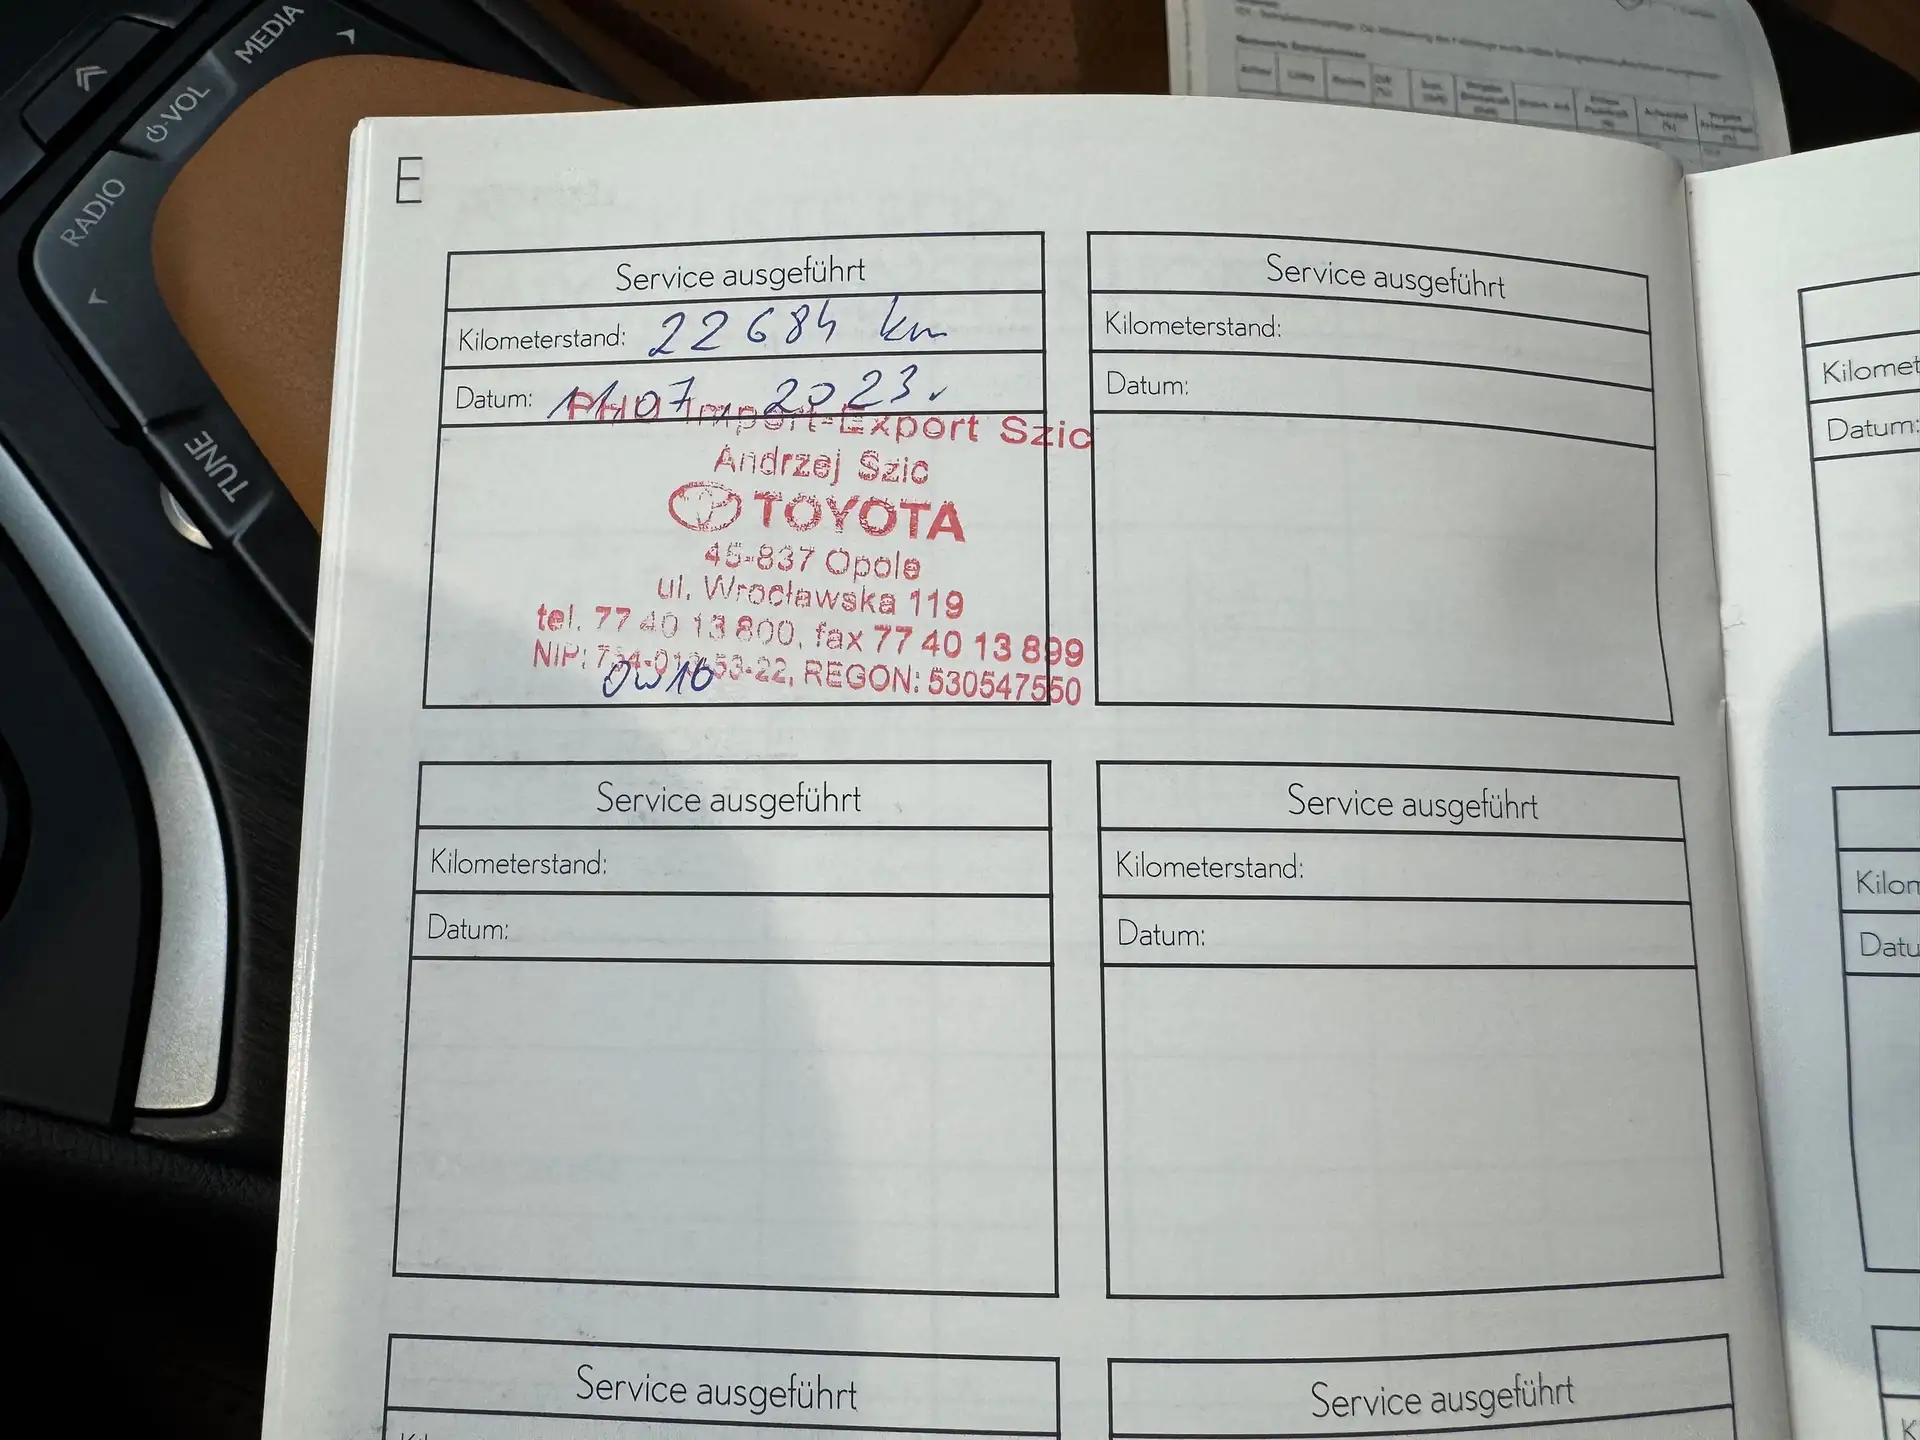 MEDIA
VOL
RADIO
TUNE
E
Service ausgeführt
Kilometerstand: 22684 km
Datum: 11.07. 2023
PHU Import-Export Szic
Andrzej Szic
TOYOTA
45-837 Opole
ul. Wrocławska 119
tel. 77 40 13 800, fax 77 40 13 899
NIP: REGON: 530547550
Service ausgeführt
Kilometerstand:
Datum:
Service ausgeführt
Kilometerstand:
Datum:
Service ausgeführt
Kilometerstand:
Datum:
Service ausgeführt
Service ausgeführt
Kilomet
Datum:
Kilom
Datu